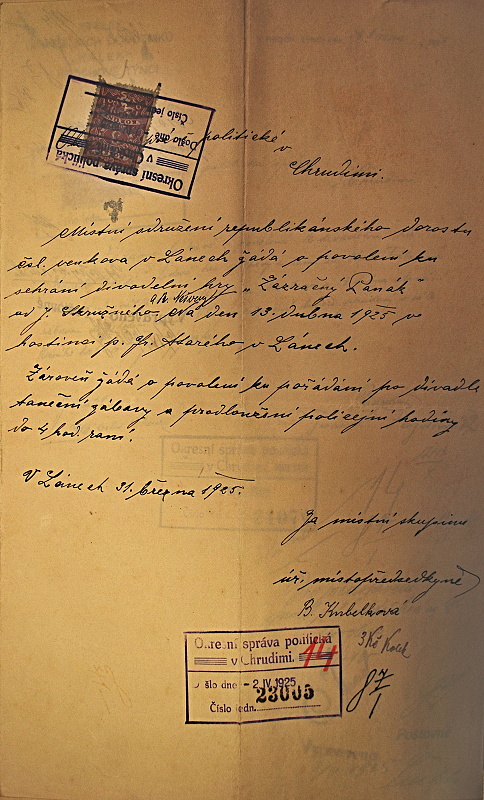 Okresní správa politická
v
Došlo dne
Číslo jedn.
politické
v
Chrudimi.
Místní sdružení republikánského dorostu
čsl. venkova v Lánech žádá o povolení ku
sehrání divadelní hry „Zázračný Panák“
od J. Skružného. Na den 13. dubna 1925 ve
hostinci p. Fr. Starého v Lánech.
Zároveň žádá o povolení ku pořádání po divadle
taneční zábavy a prodloužení policejní hodiny
do 4 hod. ranní.
V Lánech 31. března 1925.
Za místní skupinu
úř. místopředsedkyně
B. Kubelková
3 Kč kolek
Okresní správa politická
v Chrudimi. 14
došlo dne - 2 IV 1925
23005
Číslo jedn.
87
1